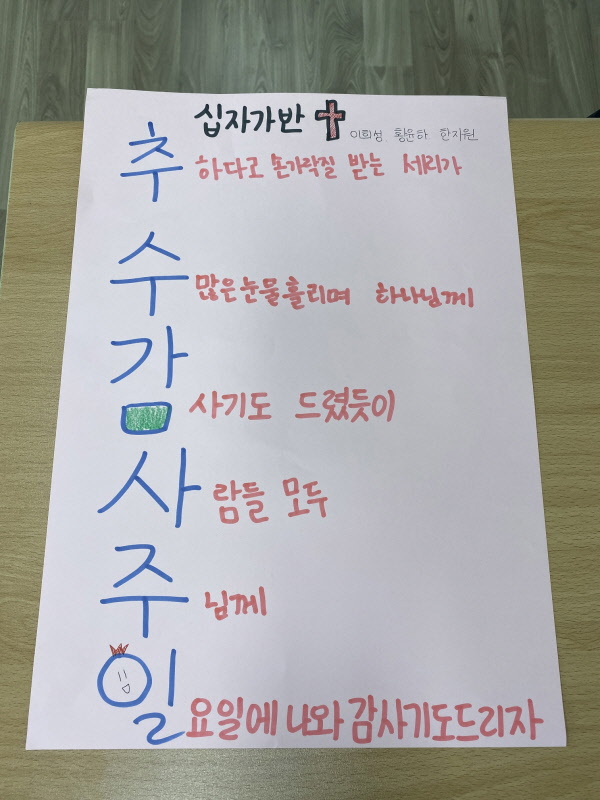 십자가반
이희성 황윤하 한지원
추하다고 손가락질 받는 세리가
수많은 눈물 흘리며 하나님께
감사기도 드렸듯이
사람들 모두
주님께
일요일에 나와 감사기도드리자